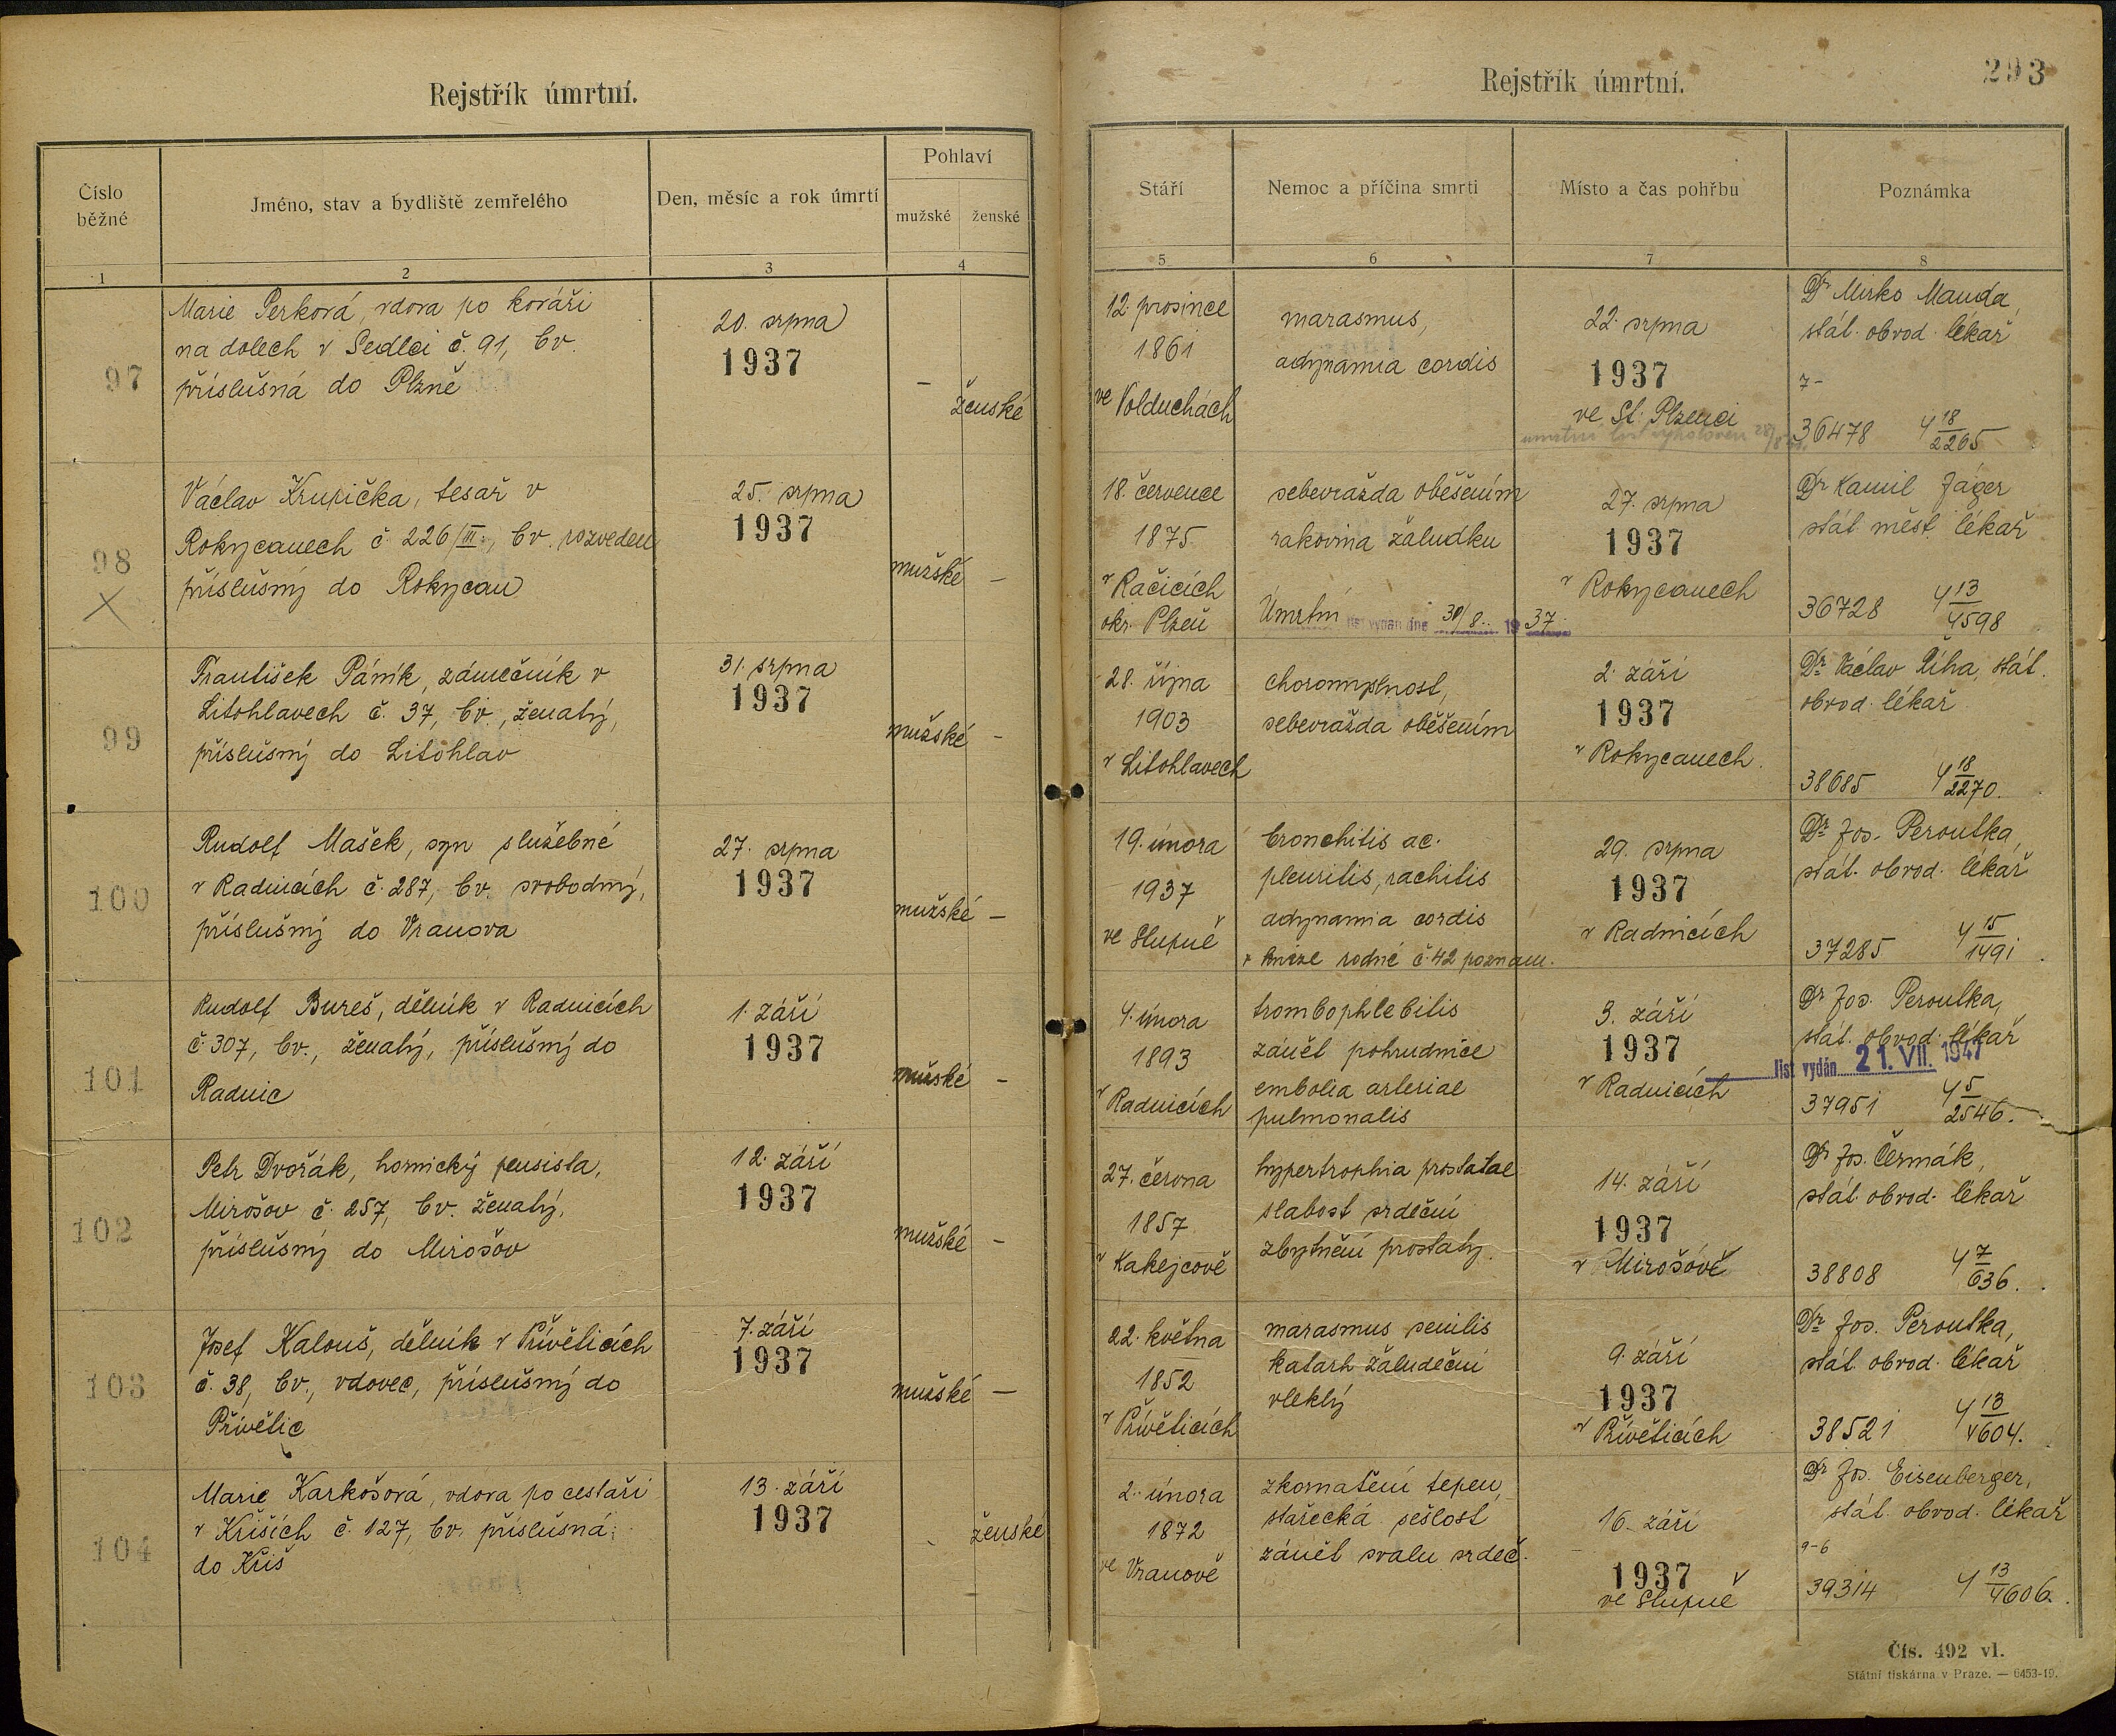 Rejstřík úmrtní.
Číslo běžné
Jméno, stav a bydliště zemřelého
Den, měsíc a rok úmrtí
Pohlaví
mužské
ženské
1
2
3
4
97
Marie Perková, vdova po kováři
na dolech v Sedlci č. 91, bv.
příslušná do Plzně
20. srpna
1937
–
ženské
98
Václav Krupička, tesař v
Rokycanech č. 226/III., bv. rozveden
příslušný do Rokycan
25. srpna
1937
mužské –
99
František Páník, zámečník v
Litohlavech č. 37, bv., ženatý,
příslušný do Litohlav
31. srpna
1937
mužské –
100
Rudolf Mašek, syn služebné
v Radnicích č. 287, bv. svobodný,
příslušný do Vranova
27. srpna
1937
mužské –
101
Rudolf Bureš, dělník v Radnicích
č. 307, bv., ženatý, příslušný do
Radnic
1. září
1937
mužské –
102
Petr Dvořák, hornický pensista,
Mirošov č. 257, bv. ženatý,
příslušný do Mirošov
12. září
1937
mužské –
103
Josef Kalouš, dělník v Přívěticích
č. 38, bv., vdovec, příslušný do
Přívětic
7. září
1937
mužské –
104
Marie Karkošová, vdova po cestáři
v Křiších č. 127, bv. příslušná
do Kříš
13. září
1937
ženské
Rejstřík úmrtní.
293
Stáří
Nemoc a příčina smrti
Místo a čas pohřbu
Poznámka
5
6
7
8
12. prosince
1861
ve Volduchách
marasmus,
adynamia cordis
22. srpna
1937
ve St. Plzenci
Dr Mirko Mauda,
stát. obvod. lékař
7-
36478 4 18/2265
18. července
1875
v Račicích
okr. Plzeň
sebevražda oběšením
rakovina žaludku
Úmrtní list vydán dne 30/8. 1937.
27. srpna
1937
v Rokycanech
Dr Kamil Jäger
stát. měst. lékař
36728 4 13/4598
28. října
1903
v Litohlavech
choromyslnost,
sebevražda oběšením
2. září
1937
v Rokycanech.
Dr Václav Říha, stát.
obvod. lékař
38685 4 18/2270.
19. února
1937
ve Stupně
bronchitis ac.
pleuritis, rachitis
adynamia cordis
v knize rodné č. 42 poznam.
29. srpna
1937
v Radnicích
Dr Jos. Peroutka,
stát. obvod. lékař
37285 4 15/1491
4. února
1893
v Radnicích
trombophlebitis
zánět pohrudnice
embolia arteriae
pulmonalis
3. září
1937
v Radnicích
Dr Jos. Peroutka,
stát. obvod. lékař
list vydán 21. VII. 1947
37951 4 5/2546.
27. června
1857
v Kakejcově
hypertrophia prostatae
slabost srdeční
zbytnění prostaty.
14. září
1937
v Mirošově
Dr Jos. Čermák,
stát. obvod. lékař
38808 4 7/636.
22. května
1852
v Přívěticích
marasmus senilis
katarh žaludeční
vleklý
9. září
1937
v Přívěticích
Dr Jos. Peroutka,
stát. obvod. lékař
38521 4 13/4604.
2. února
1872
ve Vranově
zkornatění tepen,
stařecká sešlost
zánět svalu srdeč.
16. září
1937
ve Stupně
Dr Jos. Eisenberger,
stát. obvod. lékař
9-6
39314 4 13/4606.
Čís. 492 vl.
Státní tiskárna v Praze. — 6453-19.